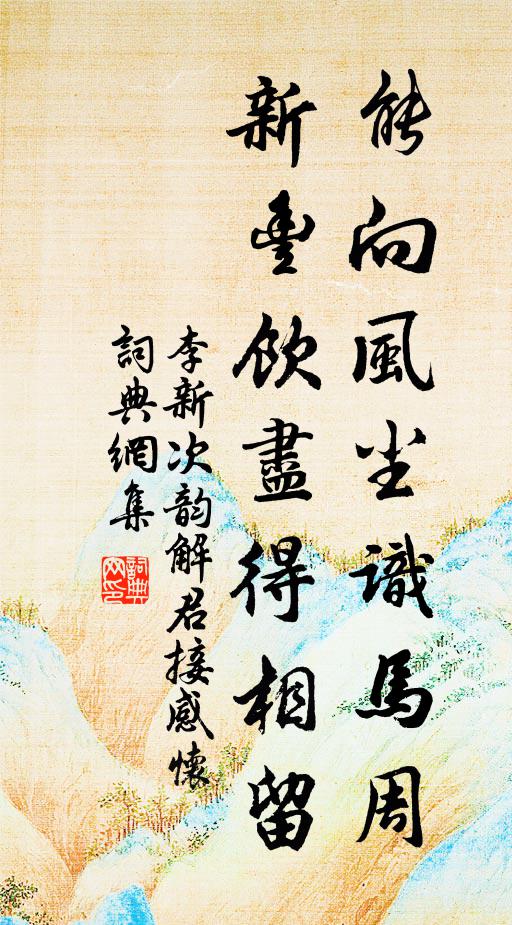 能向風尘識馬周
新豊飲盡得相留
李新次韵解君接感懷
詞典網集
詞典网印